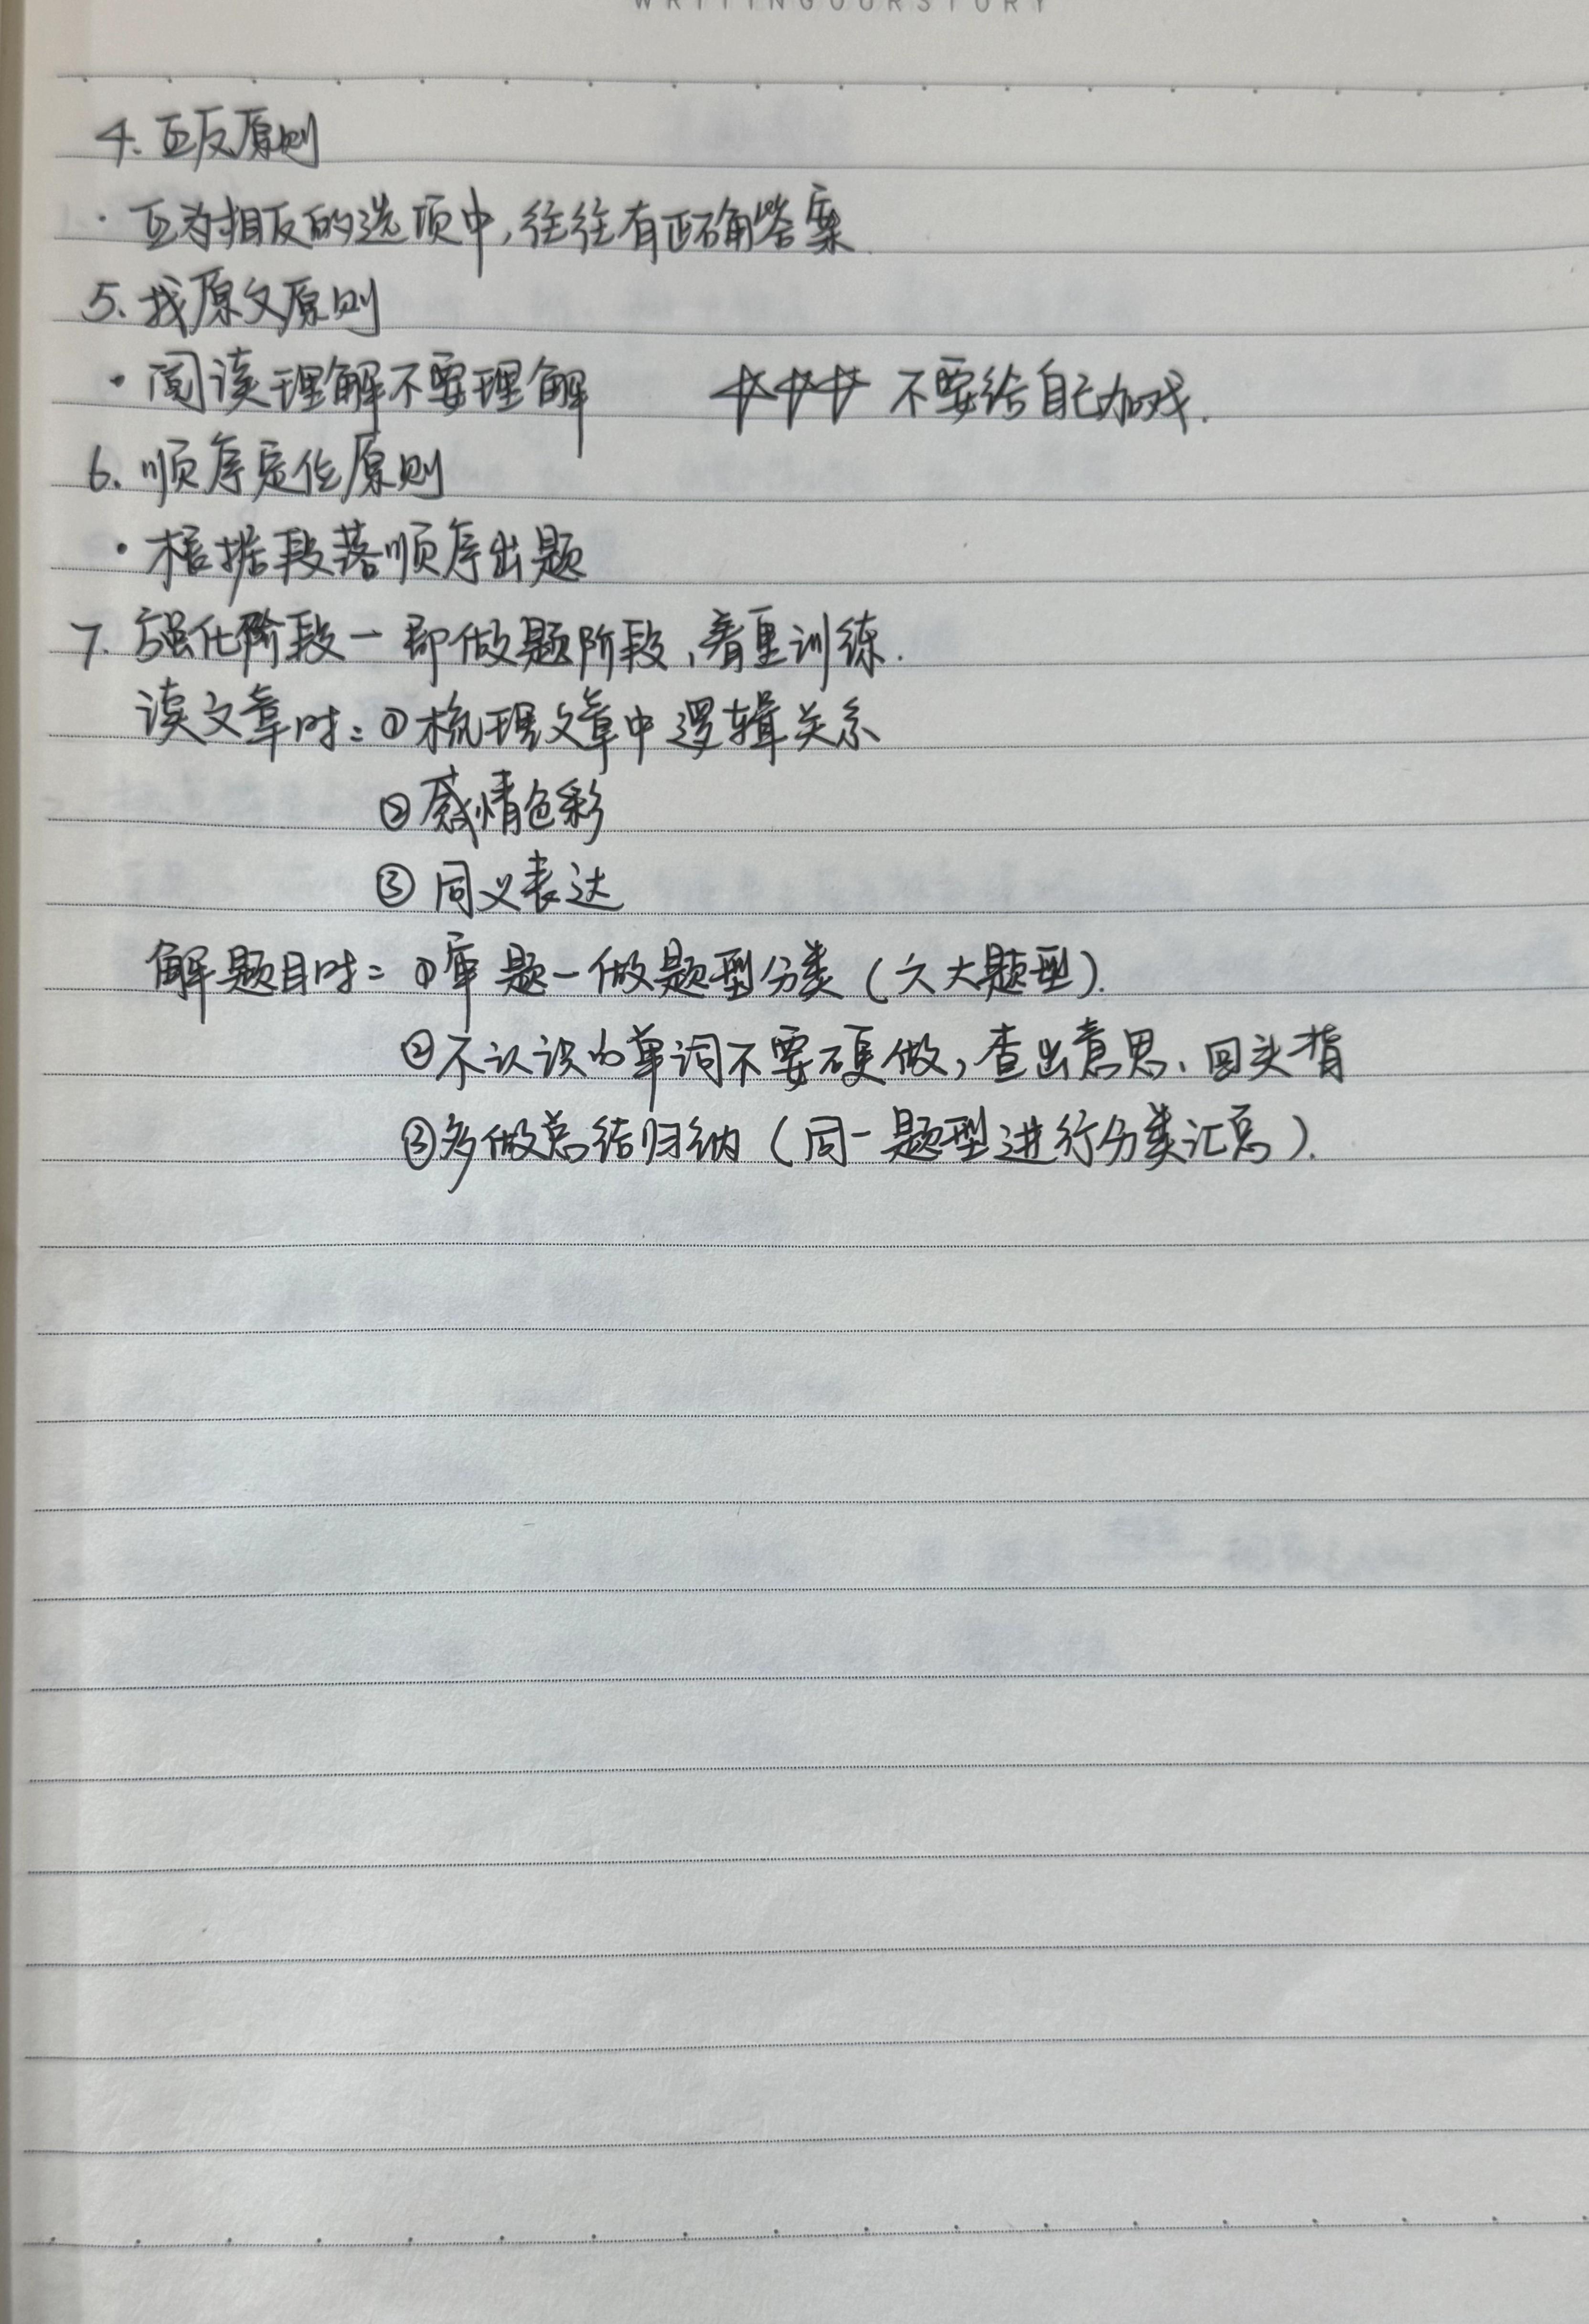 WRITINGOURSTORY
4. 互反原则
· 互为相反的选项中,往往有正确答案
5. 找原文原则
· 阅读理解不要理解 ☆☆☆ 不要给自己加戏.
6. 顺序定位原则
· 根据段落顺序出题
7. 强化阶段一 即做题阶段,着重训练.
读文章时: ①梳理文章中逻辑关系
②感情色彩
③同义表达
解题目时: ①审题一做题型分类(六大题型).
②不认识的单词不要硬做,查出意思、回头背
③多做总结归纳(同一题型进行分类汇总).